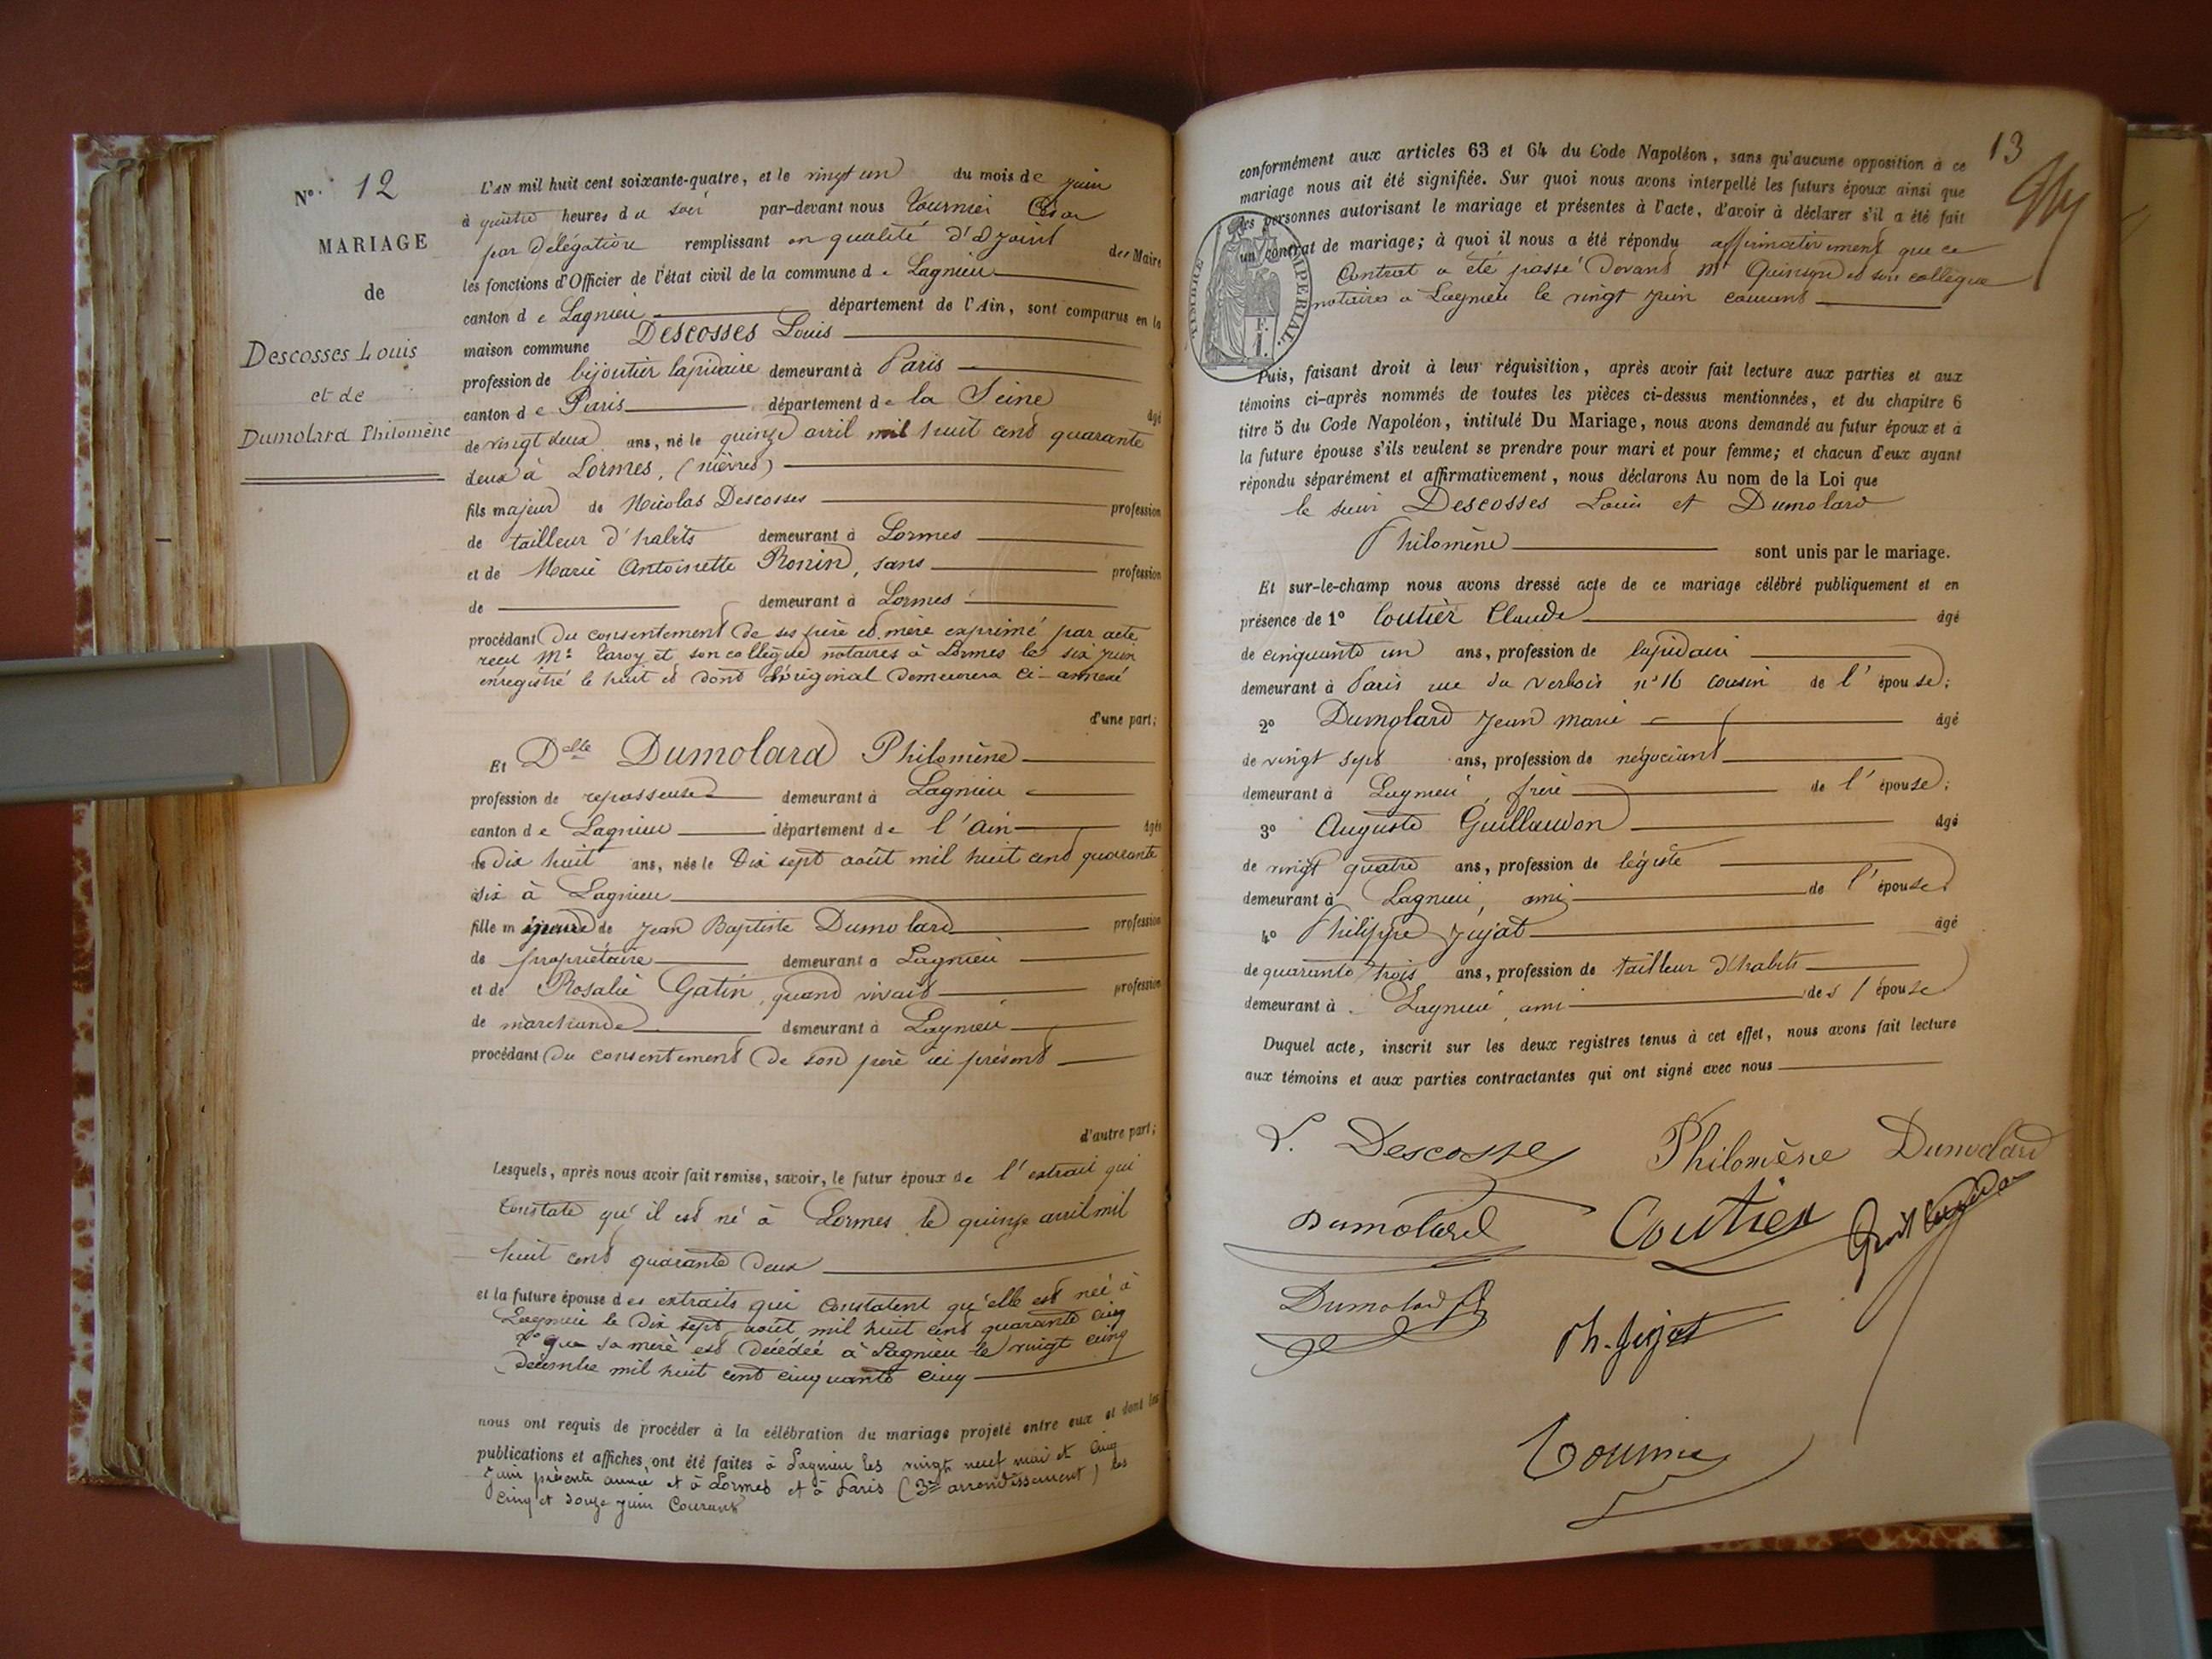 N°. 12
MARIAGE
de
Descosses Louis
et de
Dumolard Philomène
L'AN mil huit cent soixante-quatre, et le vingt un du mois de juin
à quatre heures du soir par-devant nous Tournier César
par délégation remplissant en qualité d'adjoint des Maire
les fonctions d'Officier de l'état civil de la commune de Lagnieu
canton de Lagnieu département de l'Ain, sont comparus en la
maison commune Descosses Louis
profession de bijoutier lapidaire demeurant à Paris
canton de Paris département de la Seine âgé
de vingt deux ans, né le quinze avril mil huit cent quarante
deux à Lormes, (nièvres)
fils majeur de Nicolas Descosses profession
de tailleur d'habits demeurant à Lormes
et de Marie Antoinette Ronin, sans profession
de demeurant à Lormes
procédant du consentement de ses père et mère exprimé par acte
recu Me et son collègue notaires à Lormes le six juin
enregistré le huit et dont l'original demeurera ci-annexé
d'une part;
Et Delle Dumolard Philomène
profession de repasseuse demeurant à Lagnieu
canton de Lagnieu département de l'Ain âgée
de dix huit ans, née le dix sept août mil huit cent quarante
six à Lagnieu
fille mineure de Jean Baptiste Dumolard profession
de propriétaire demeurant à Lagnieu
et de Rosalie Gatin, quand vivait profession
de marchande demeurant à Lagnieu
procédant du consentement de son père ici présent
d'autre part;
Lesquels, après nous avoir fait remise, savoir, le futur époux de l'extrait qui
constate qu'il est né à Lormes le quinze avril mil
huit cent quarante deux
et la future épouse des extraits qui constatent qu'elle est née à
Lagnieu le dix sept août mil huit cent quarante cinq
2° que sa mère est décédée à Lagnieu le vingt cinq
décembre mil huit cent cinquante cinq
nous ont requis de procéder à la célébration du mariage projeté entre eux et dont les
publications et affiches ont été faites à Lagnieu les vingt neuf mai et cinq
juin présente année et à Lormes et à Paris (3me arrondissement) les
cinq et douze juin courant
13
conformément aux articles 63 et 64 du Code Napoléon, sans qu'aucune opposition à ce
mariage nous ait été signifiée. Sur quoi nous avons interpellé les futurs époux ainsi que
les personnes autorisant le mariage et présentes à l'acte, d'avoir à déclarer s'il a été fait
un contrat de mariage; à quoi il nous a été répondu affirmativement que ce
Contrat a été passé devant Me Quinson et son collègue
notaires à Lagnieu le vingt juin courant
TIMBRE IMPERIAL.
Puis, faisant droit à leur réquisition, après avoir fait lecture aux parties et aux
témoins ci-après nommés de toutes les pièces ci-dessus mentionnées, et du chapitre 6
titre 5 du Code Napoléon, intitulé Du Mariage, nous avons demandé au futur époux et à
la future épouse s'ils veulent se prendre pour mari et pour femme; et chacun d'eux ayant
répondu séparément et affirmativement, nous déclarons Au nom de la Loi que
le sieur Descosses Louis et Dumolard
Philomène sont unis par le mariage.
Et sur-le-champ nous avons dressé acte de ce mariage célébré publiquement et en
présence de 1° Coutier Claude âgé
de cinquante un ans, profession de lapidaire
demeurant à Paris rue du verbois n° 16 cousin de l'épouse;
2° Dumolard Jean marie âgé
de vingt sept ans, profession de négociant
demeurant à Lagnieu, frère de l'épouse;
3° Auguste Guillaudon âgé
de vingt quatre ans, profession de légiste
demeurant à Lagnieu, ami de l'épouse
4° Philippe Jujat âgé
de quarante trois ans, profession de tailleur d'habits
demeurant à Lagnieu, ami de l'épouse
Duquel acte, inscrit sur les deux registres tenus à cet effet, nous avons fait lecture
aux témoins et aux parties contractantes qui ont signé avec nous
L. Descosses Philomène Dumolard
Dumolard Coutier
Dumolard
Ph. Jujat
Tournier